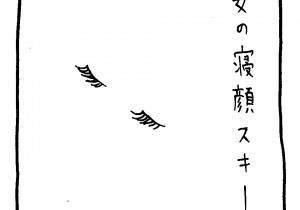 の寝顔スキー